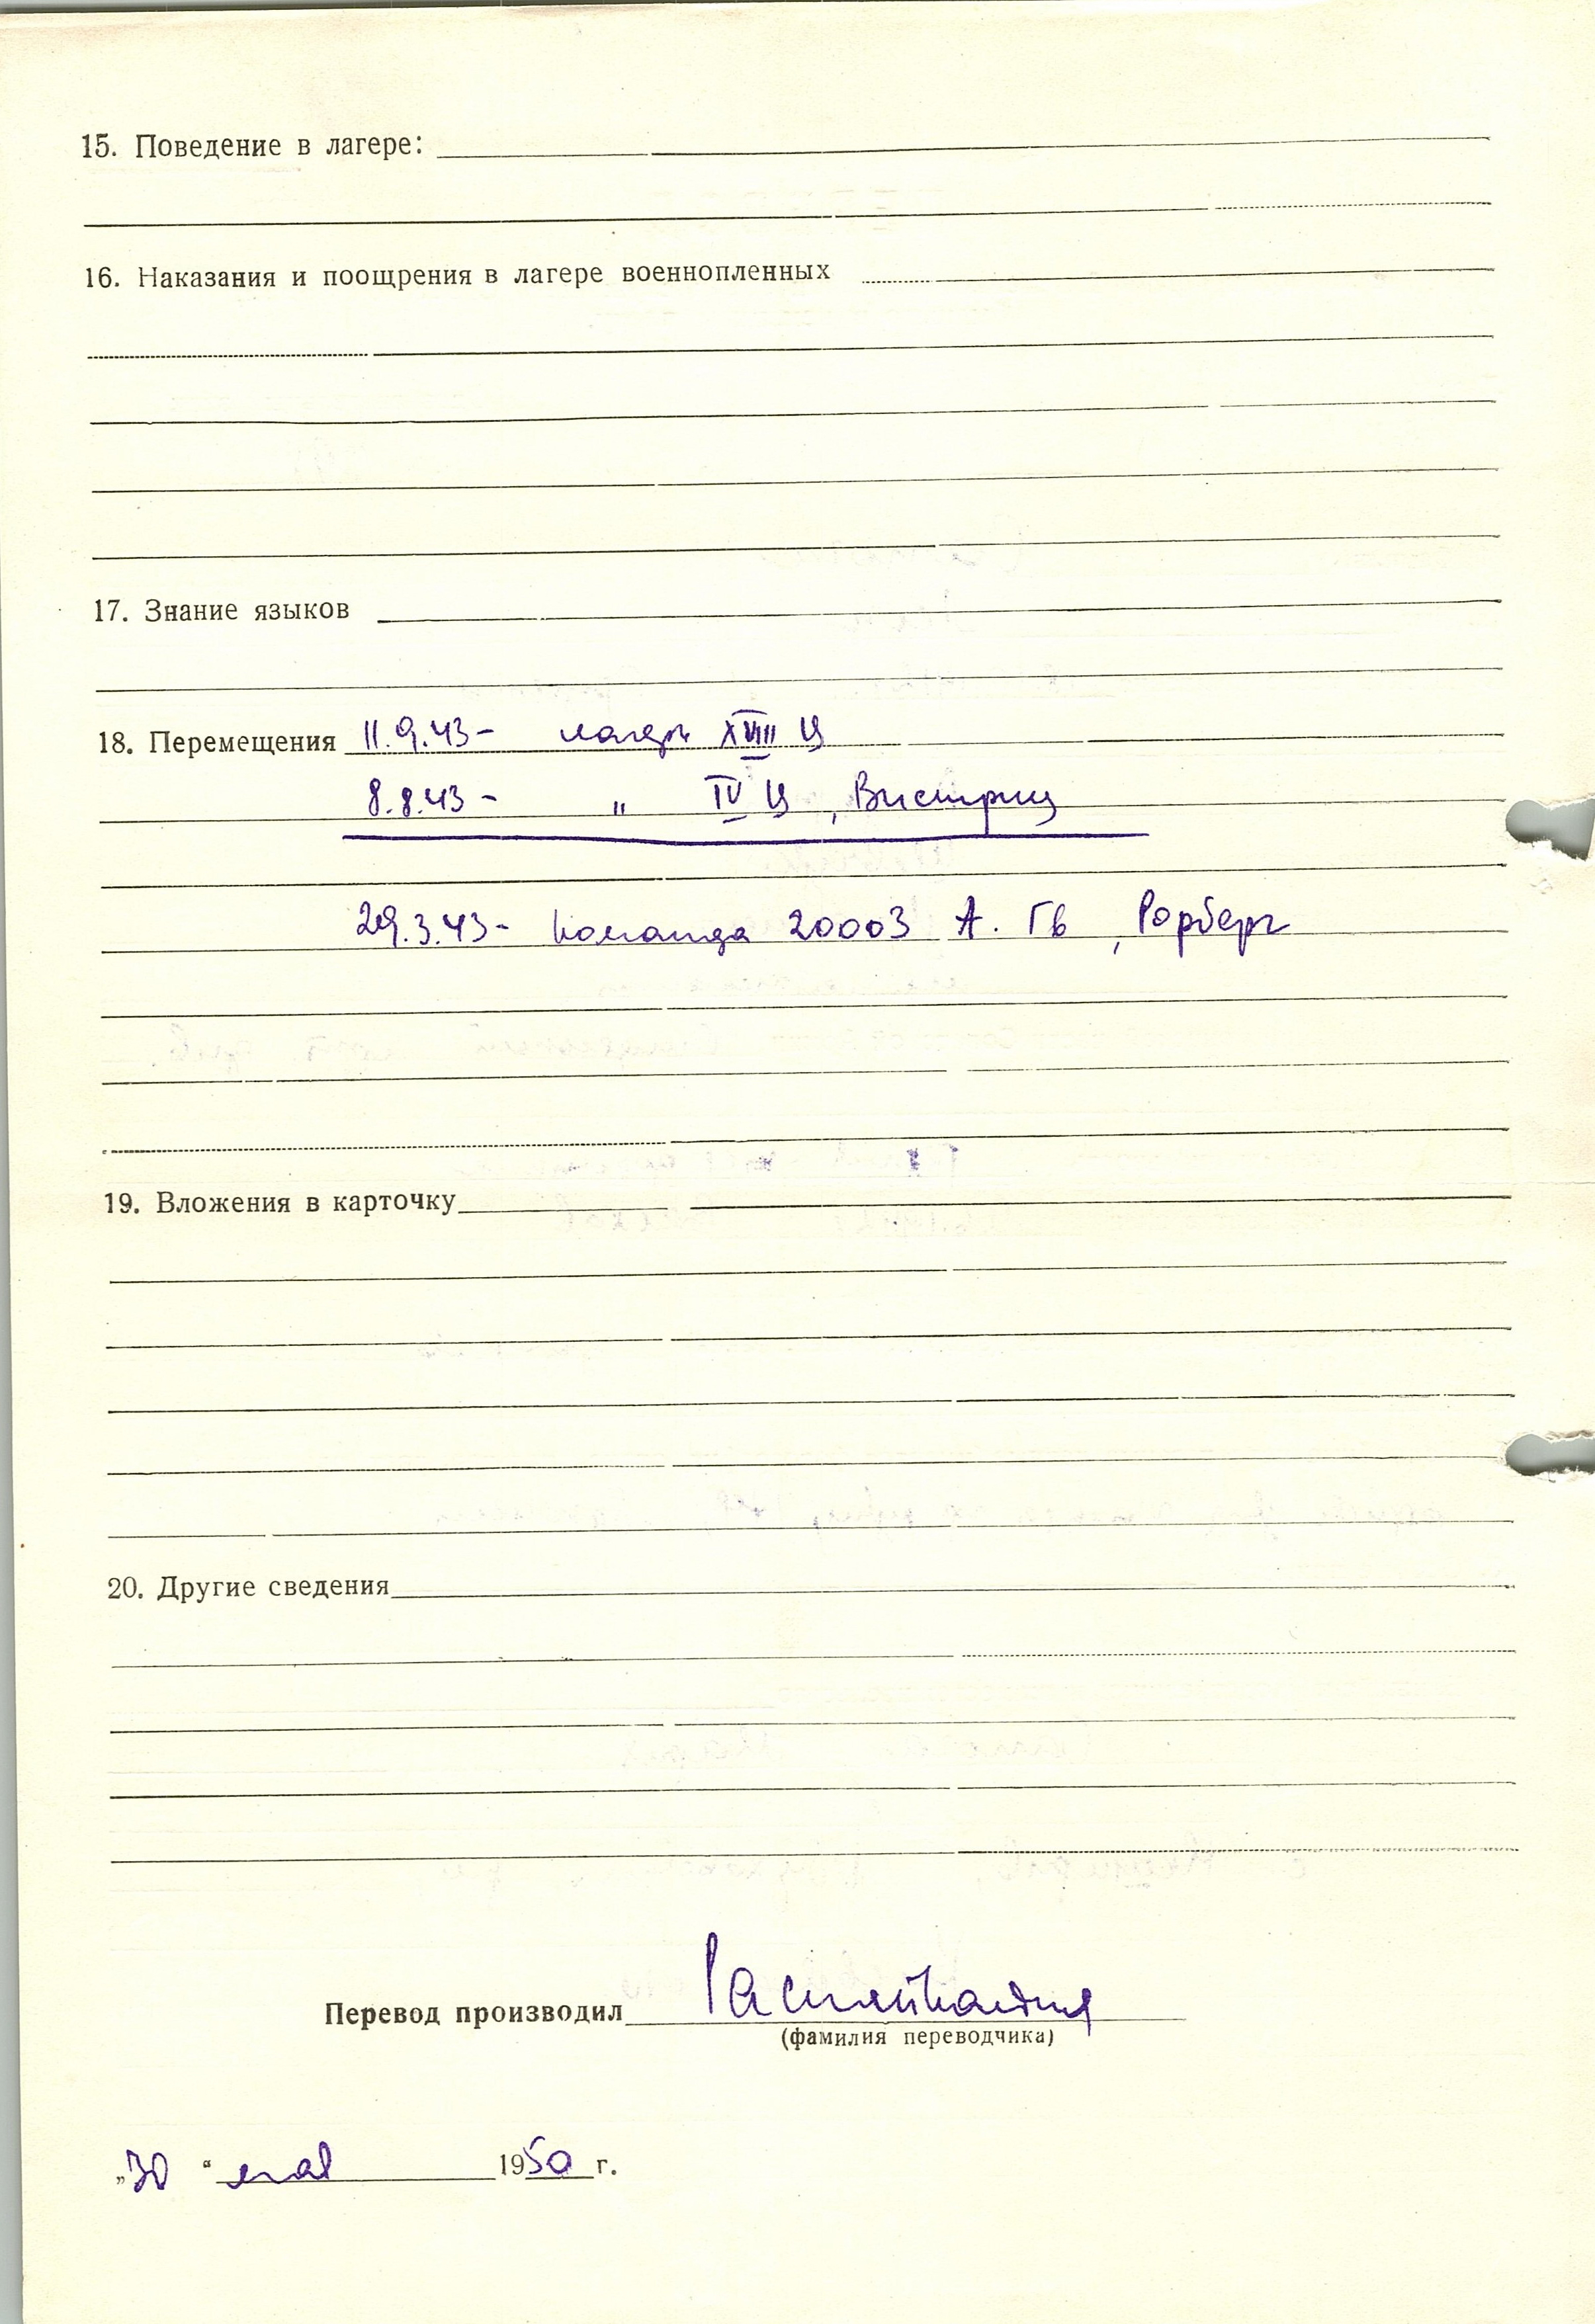 15. Поведение в лагере:
16. Наказания и поощрения в лагере военнопленных
17. Знание языков
18. Перемещения 11.9.43 - лагерь XVIII Ц
8.8.43 - " IV Ц, Вистриц
29.3.43 - команда 20003 А. Гв, Рорберг
19. Вложения в карточку
20. Другие сведения
Перевод производил
(фамилия переводчика)
„30“ мая 1950 г.